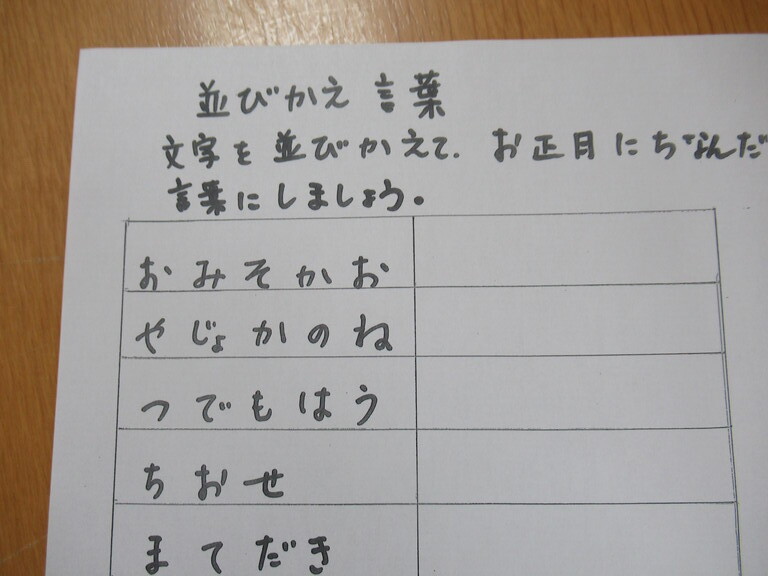 並びかえ 言葉
文字を並びかえて、お正月にちなんだ
言葉にしましょう。
おみそかお
やじょかのね
つでもはう
ちおせ
まてだき